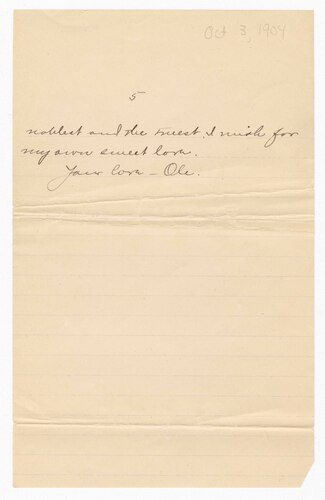 Oct 3, 1904
5
noblest and the truest, I wish for
my own sweet love.
Your love – Ole.